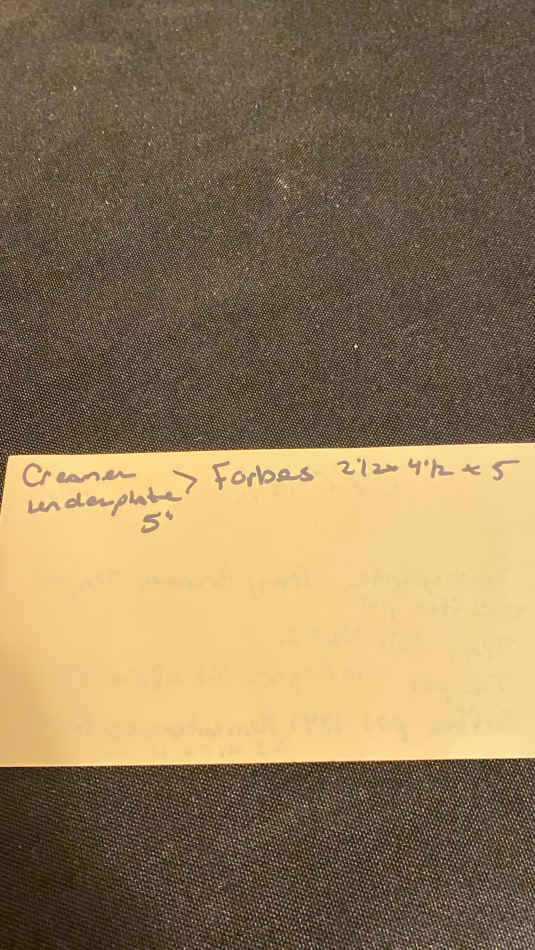 Creamer > Forbes 2 1/2 x 4 1/2 x 5
underplate
5"